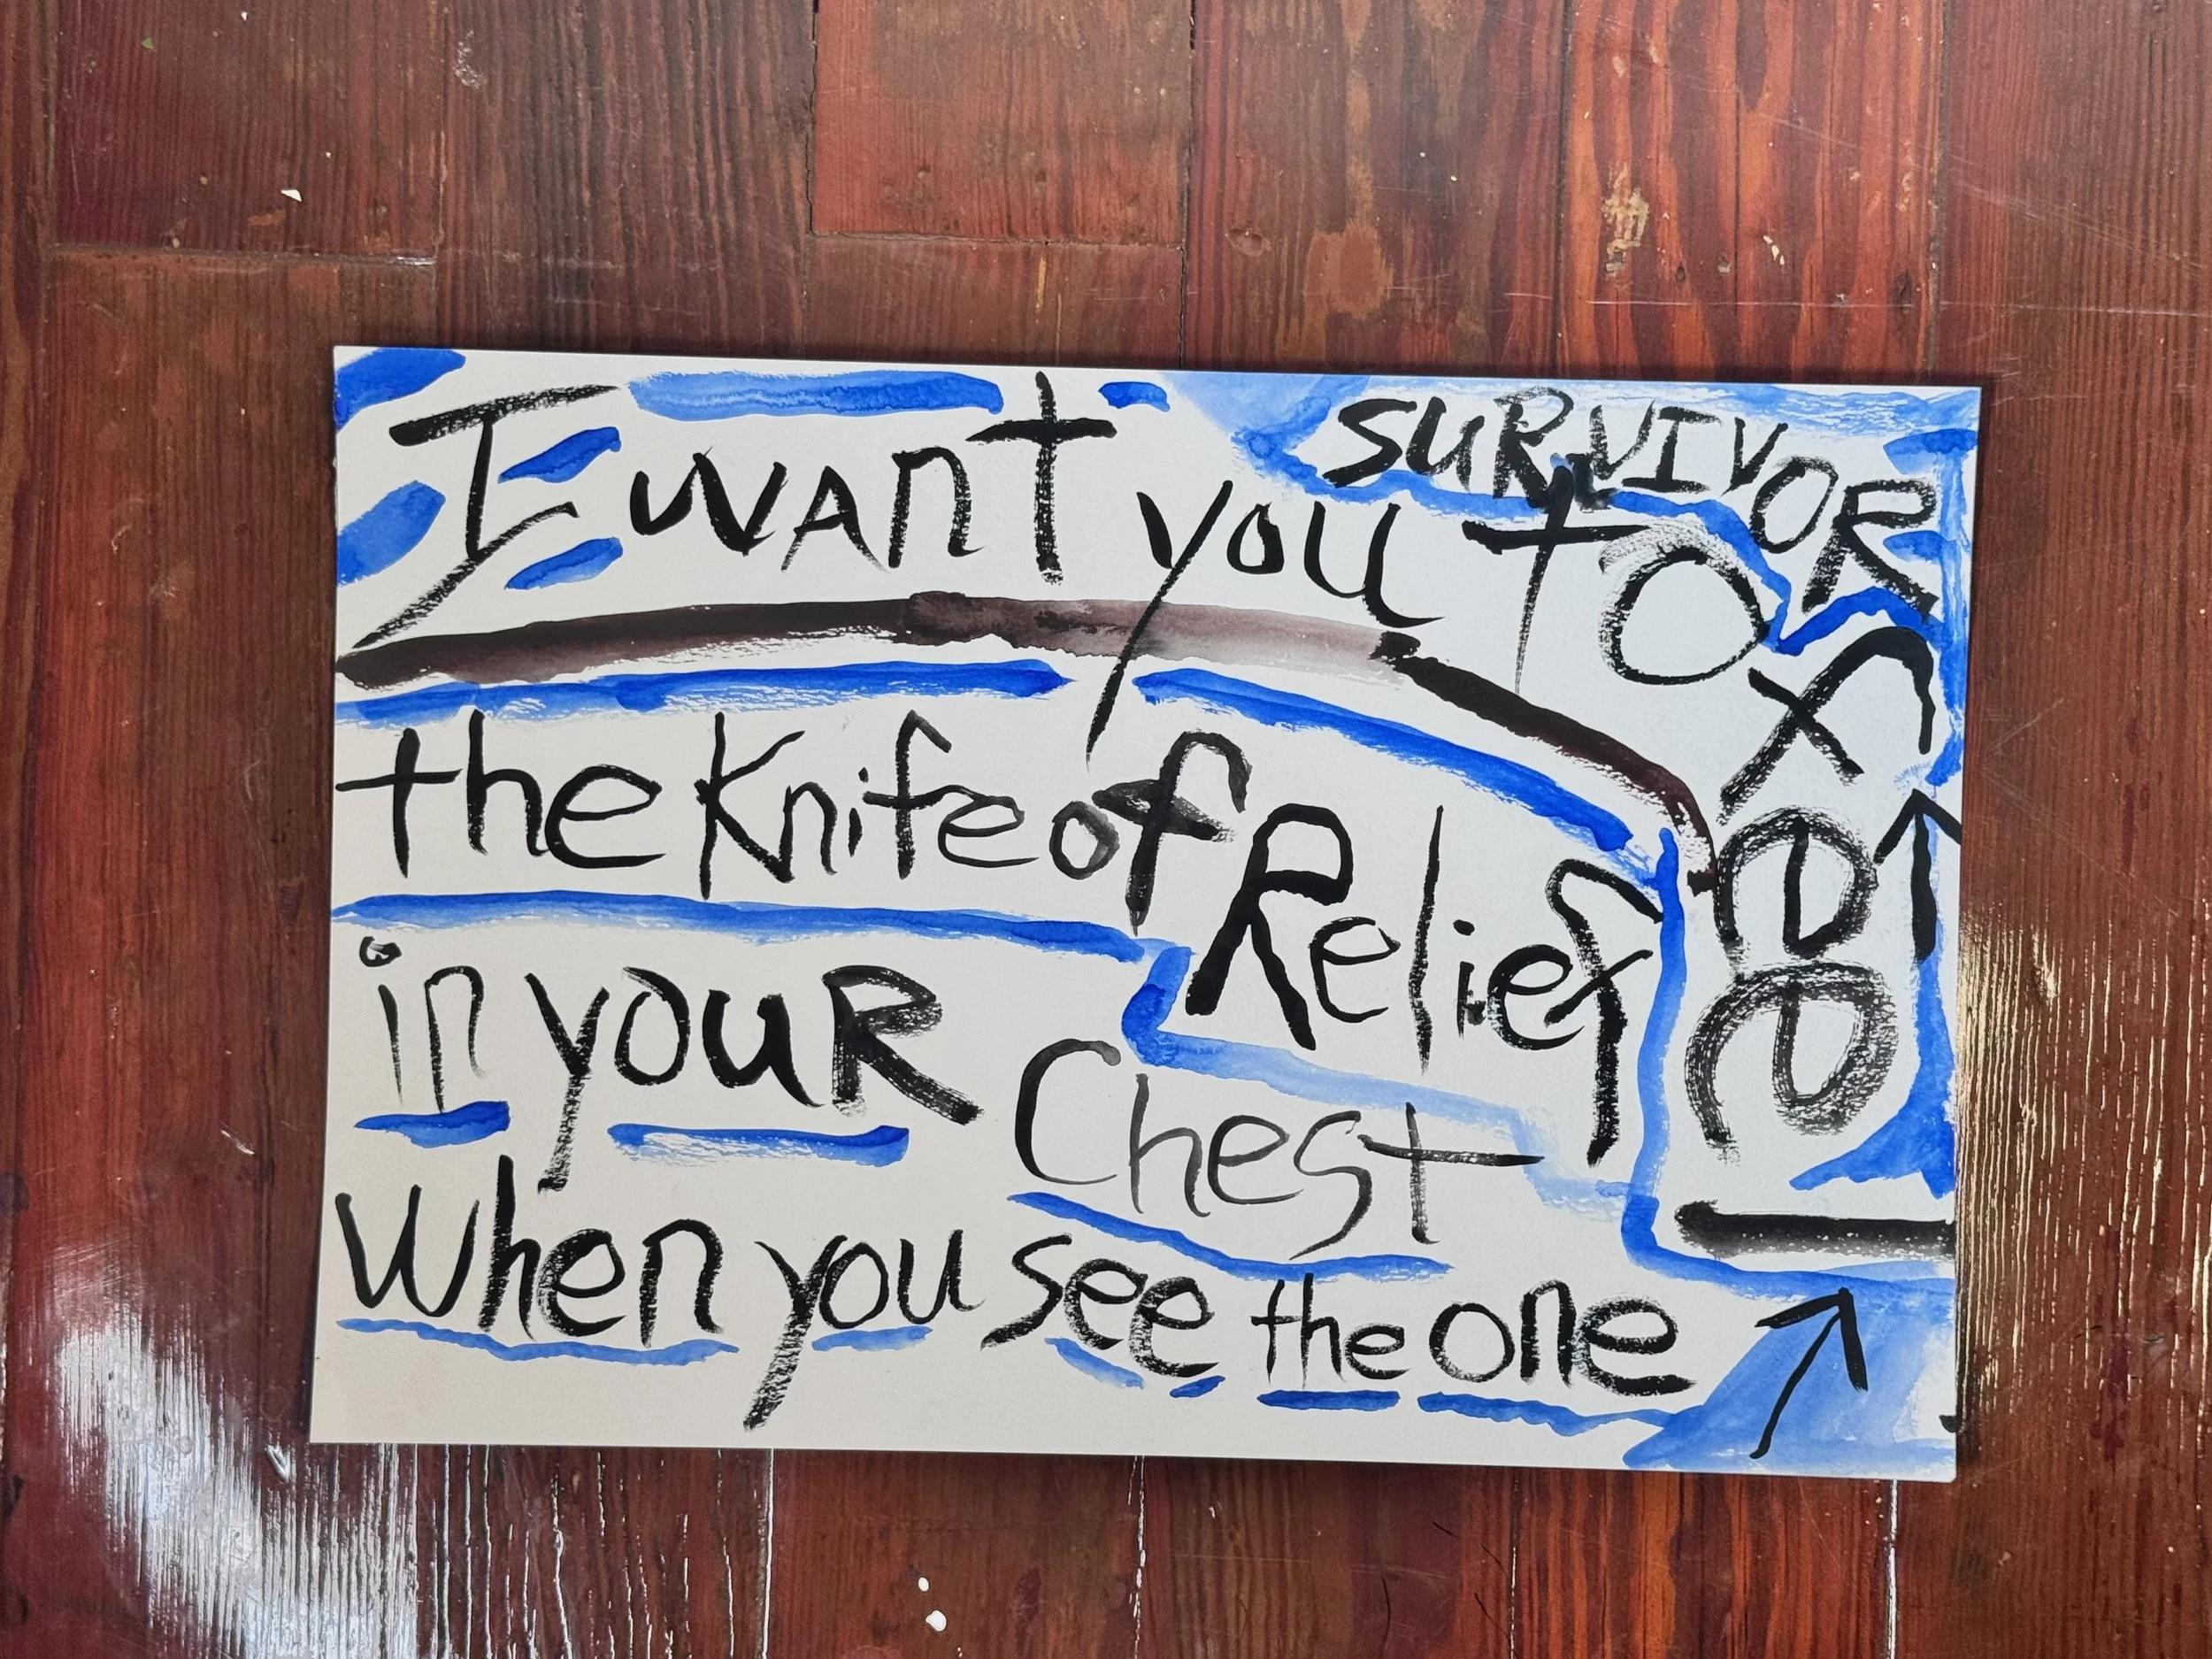 I want you to feel
the Knife of Relief
in your Chest
When you see the one
SURVIVOR